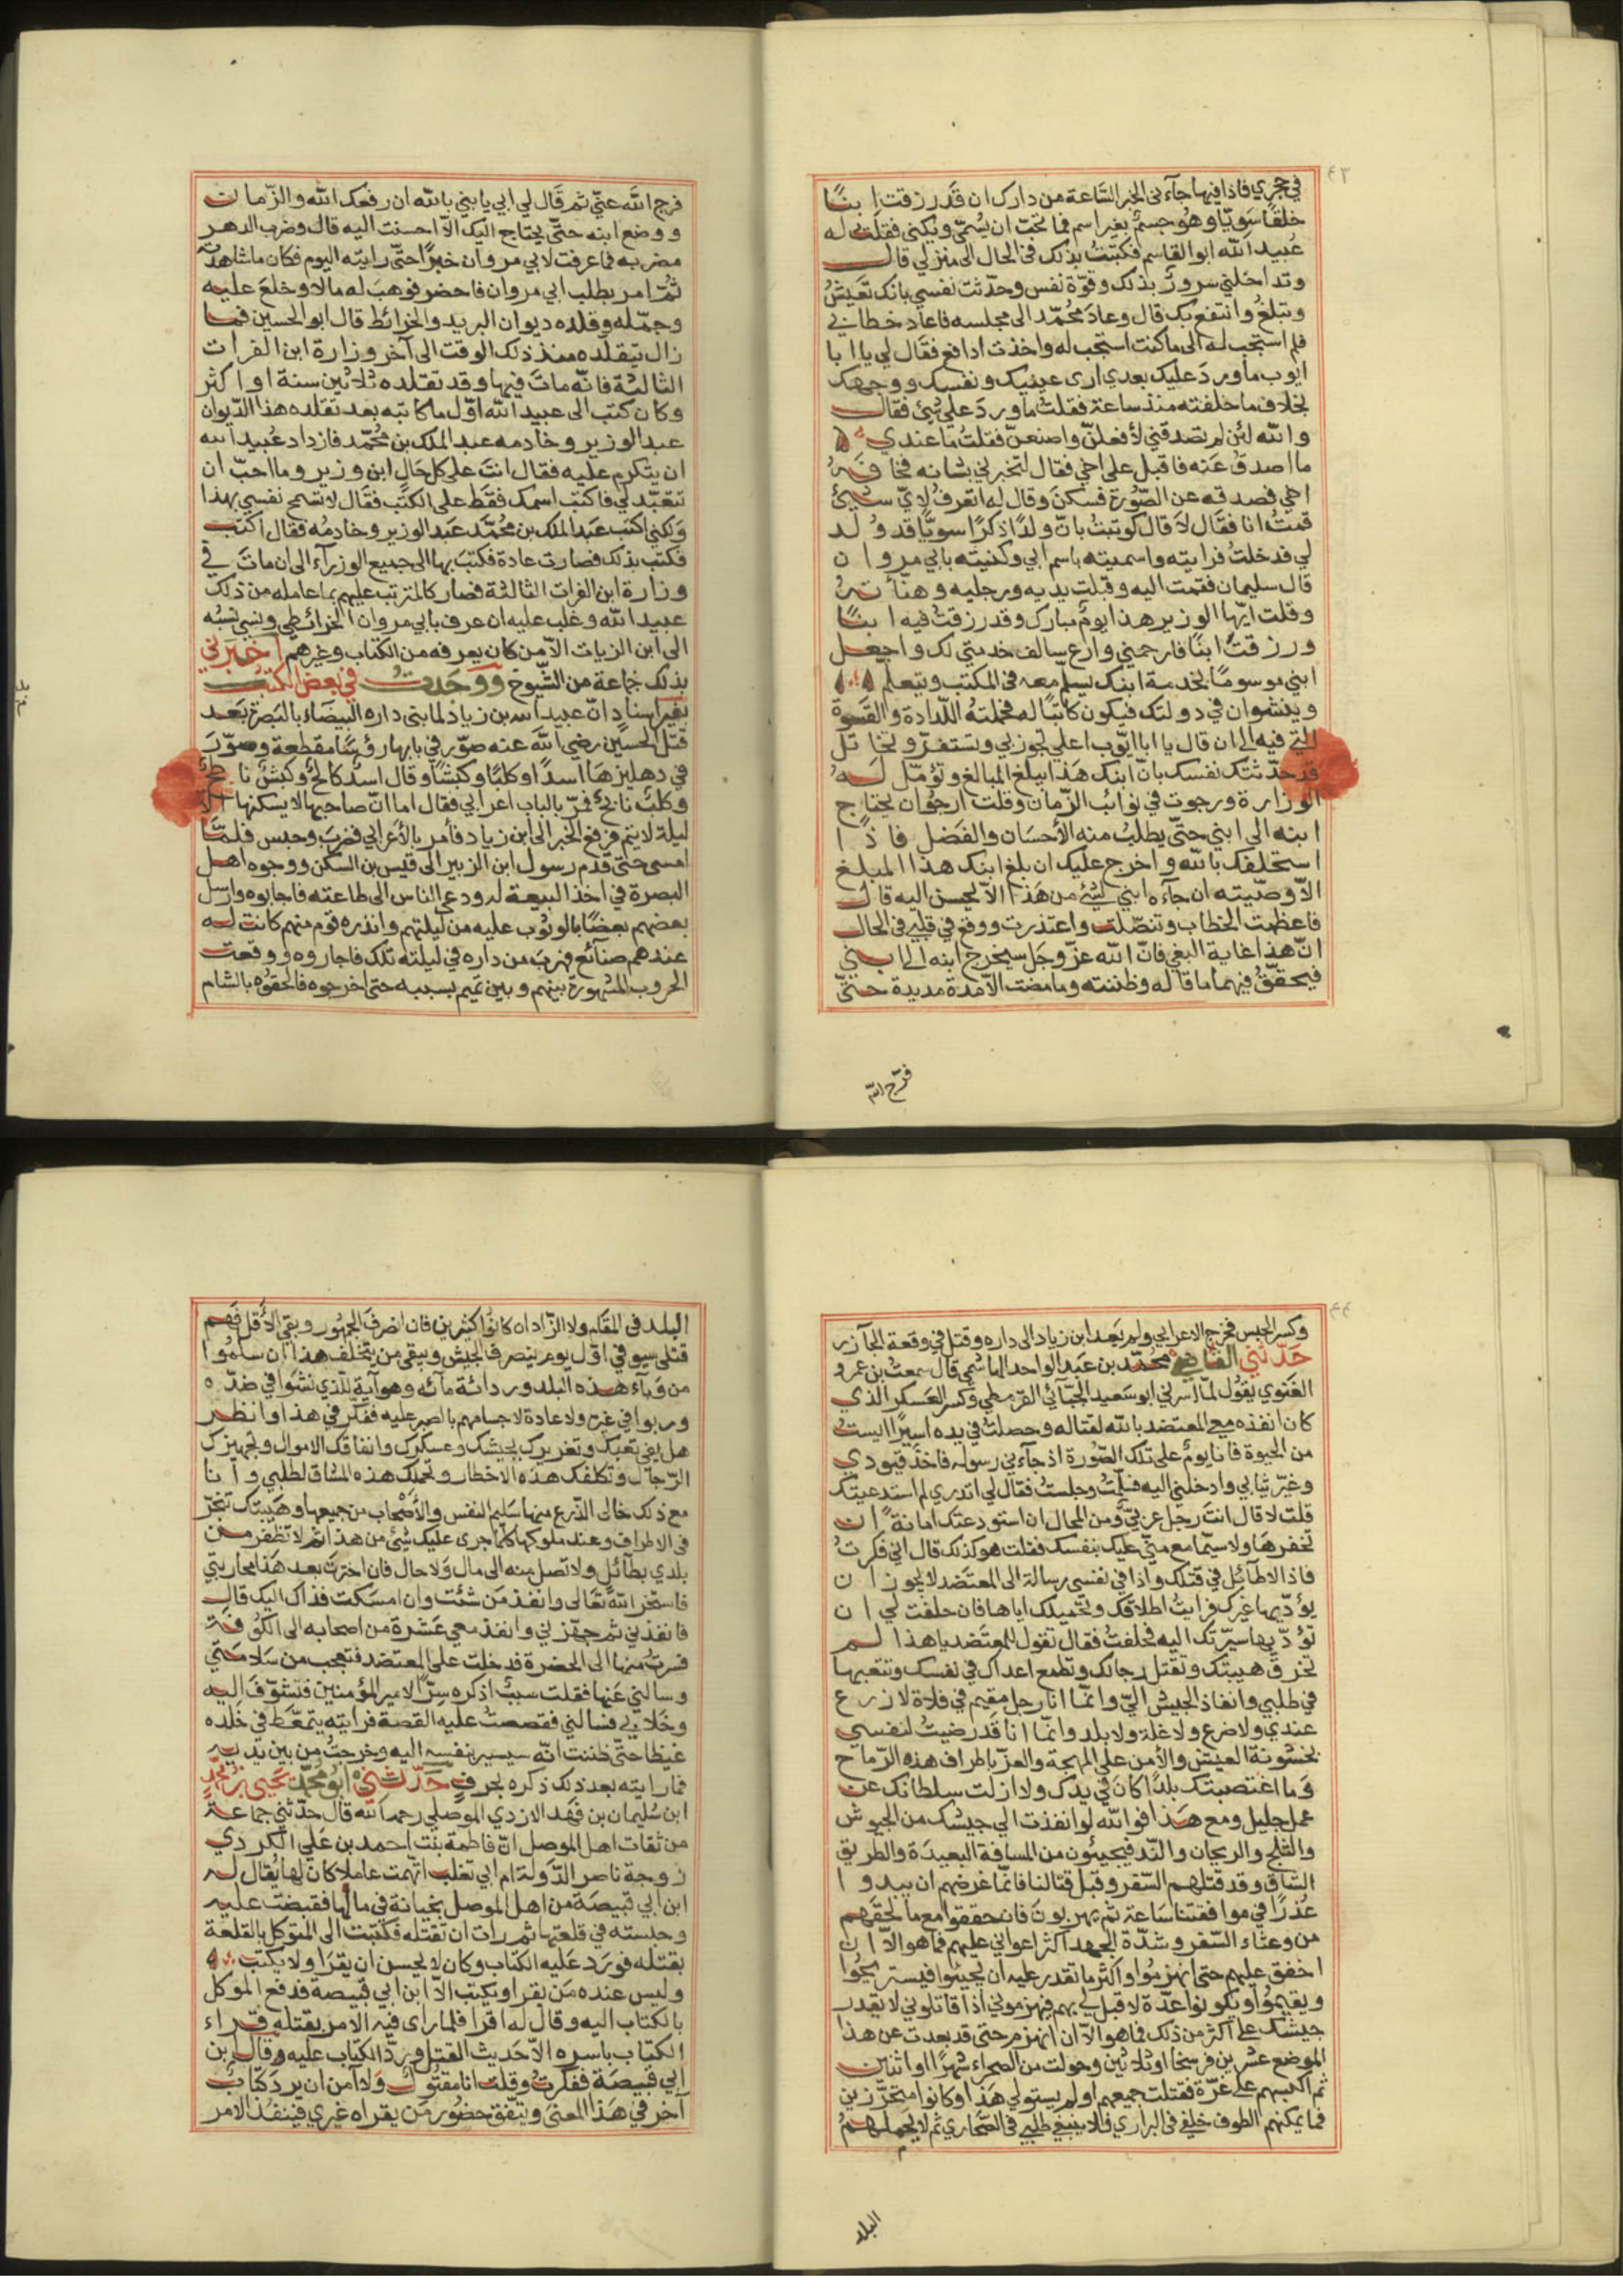 ٤٣
في حجري فاذا فيها جآءني الخبر الساعة من دارك ان قد رزقت ابنًا
خلقًا سويًّا وهو جسم بغير اسم فما تحب ان يسمّى ويكنى فقلت له
عبيد الله ابو القاسم فكتبت بذلك في الحال الى منزلي قال
وتداخلني سرور بذلك وقوّة نفس وحدّثت نفسي بانك تعيش
وتبلغ وانتفع بك قال وعاد محمّد الى مجلسه فاعاد خطابي
فلم استجب له الى ماكنت استجب له واخذت ادافع فقال لي يا ابا
ايوب ما ورد عليك بعدي ارى عينيك ونفسك ووجهك
بخلاف ما خلفته منذ ساعة فقلت ما ورد علي شئ فقال
والله لئن لم تصدقني لأفعلنّ واصنعنّ فقلت ما عندي
ما اصدق عنه فاقبل على اخي فقال لتخبرني بشانه فخافه
اخي فصدقه عن الصّورة فسكن وقال له اتعرف لايّ شيئ
قمت انا فقال لا قال كوتبت بانّ ولدًا ذكرًا سويًّا قد ولد
لي فدخلت فرايته واسميته باسم ابي وكنيته بابي مروان
قال سليمان فقمت اليه وقبلت يديه ورجليه وهنأته
وقلت ايّها الوزير هذا يوم مبارك وقد رزقت فيه ابنًا
ورزقت ابنًا فارحمني وارع سالف خدمتي لك واجعل
ابني موسومًا بخدمة ابنك يسلم معه في المكتب ويتعلم
وينشوان في دولتك فيكون كاتبًا له فحملته اللّدادة والقسوة
التي فيه الى ان قال يا ابا ايّوب اعلي تجوز بي وتستفزّ وتخاتل
قد حدّثتك نفسك بانّ ابنك هذا يبلغ المبالغ وتؤمّل له
الوزارة ورجوت في نوائب الزّمان وقلت ارجو ان يحتاج
ابنه الى ابني حتّى يطلب منه الأحسان والفضل فاذًا
استحلفك بالله واخرج عليك ان بلغ ابنك هذا المبلغ
الّا وصّيته ان جآءه ابني لشئ من هذا الّا يحسن اليه قال
فاعظمت الخطاب وتنصّلت واعتذرت ووقع في قلبي في الحال
انّ هذا غاية البغي فانّ الله عزّ وجل سيخرج ابنه الى ابني
فيحقّق فيهما ما قاله وظننته وما مضت الّا مدة مديدة حتّى
فرّج الله
فرج الله عنّي ثم قال لي ابي يا بني بالله ان رفعك الله والزّمان
ووضع ابنه حتّى يحتاج اليك الّا احسنت اليه قال وضرب الدهر
مضربه فما عرفت لابي مروان خبرًا حتّى رايته اليوم فكان ما شاهدت
ثمّ امر بطلب ابي مروان فاحضر فوهب له مالا وخلع عليه
وجمّله وقلده ديوان البريد والخرائط قال ابو الحسين فما
زال يتقلّده منذ ذلك الوقت الى آخر وزارة ابن الفرات
الثالثة فانّه مات فيها وقد تقلده ثلاثين سنة او اكثر
وكان كتب الى عبيد الله اوّل ما كاتبه بعد تقلده هذا الدّيوان
عبد الوزير وخادمه عبد الملك بن محمّد فازداد عبيد الله
ان يتكرم عليه فقال انت على كل حال ابن وزير وما احبّ ان
تتعبّد لي فاكتب اسمك فقط على الكتب فقال لا تسمح نفسي بهذا
ولكني اكتب عبد الملك بن محمّد عبد الوزير وخادمه فقال اكتب
فكتب بذلك فصارت عادة فكتب بها الى جميع الوزرآء الى ان مات في
وزارة ابن الفرات الثالثة فصار كالمترتب عليهم بما عامله من ذلك
عبيد الله وغلب عليه ان عرف بابي مروان الخرائطي ونسي نسبه
الى ابن الزيات الّا من كان يعرفه من الكتاب وغيرهم اخبرني
بذلك جماعة من الشّيوخ ووجدت في بعض الكتب
بغير اسناد انّ عبيد الله بن زياد لما بنى داره البيضاء بالبصرة بعد
قتل الحسين رضي الله عنه صوّر في بابها رؤسًا مقطعة وصوّر
في دهليزها اسدًا وكلبًا وكبشًا وقال اسد كالح وكبش ناطح
وكلب نابح فمرّ بالباب اعرابي فقال اما انّ صاحبها لا يسكنها الّا
ليلة لا يتم فرفع الخبر الى ابن زياد فأمر بالأعرابي فضرب وحبس فلمّا
امسى حتّى قدم رسول ابن الزبير الى قيس بن السكن ووجوه اهل
البصرة في اخذ البيعة له ودعى الناس الى طاعته فاجابوه وارسل
بعضهم بعضًا بالوثوب عليه من ليلتهم وانذره قوم منهم كانت له
عندهم صنائع فهرب من داره في ليلته تلك فاجاروه ووقعت
الحروب المشهورة بينهم وبين تميم بسببه حتى اخرجوه فالحقوه بالشام
٤٤
وكسر الحبس فخرج الاعرابي ولم يعد ابن زياد الى داره وقتل في وقعة الجآزر
حدّثني القاضي محمّد بن عبد الواحد الهاشمي قال سمعت بن عمرو
الغنوي يقول لمّا اسرني ابو سعيد الجبّائي القرمطي وكسر العسكر الذي
كان انفذه معي المعتضد بالله لقتاله وحصلت في يده اسيرًا ايست
من الحيوة فانا يوم على تلك الصّورة اذ جآءني رسوله فاخذ قيودي
وغيّر ثيابي وادخلني اليه فسلّمت وجلست فقال لي اتدري لم استدعيتك
قلت لا قال انت رجل عربيّ ومن المحال ان استودعتك امانة ان
تخفرها ولا سيّما مع منّي عليك بنفسك فقلت هو كذلك قال اني فكرت
فاذا لا طآئل في قتلك واذا في نفسي رسالة الى المعتضد لا يجوز ان
يؤدّيها غيرك فرايت اطلاقك وتحميلك اياها فان حلفت لي ان
تؤدّيها سيّرتك اليه فحلفت فقال تقول للمعتضد يا هذا لم
تخرق هيبتك وتقتل رجالك وتطمع اعداك في نفسك وتتعبها
في طلبي وانفاذ الجيش اليّ وانّما انا رجل مقيم في فلاة لا زرع
عندي ولا ضرع ولا غلة ولا بلد وانّما انا قد رضيت لنفسي
بخشونة العيش والأمن على المهجة والعزّ باطراف هذه الرّماح
وما اغتصبتك بلدًا كان في يدك ولا ازلت سلطانك عن
عمل جليل ومع هذا فوالله لو انفذت الي جيشك من الجيوش
والثلج والريحان والنّد فيجيئون من المسافة البعيدة والطريق
الشاق وقد قتلهم السّفر وقبل قتالنا فانّما غرضهم ان يبدوا
عذرًا في موافقتنا ساعة ثم يهربون فان حققوا مع ما لحقهم
من وعثاء السّفر وشدّة الجهد اكثر اعواني عليهم فما هو الّا ان
اخفق عليهم حتى انهزموا واكثر ما تقدر عليه ان يجيئوا فيستريحوا
ويقيموا ويكونوا عدّة لا قبل لي بهم فيهزموني اذا قاتلوني لا يقدر
جيشك على اكثر من ذلك فما هو الّا ان انهزم حتى قد بعدت عن هذا
الموضع عشرين فرسخًا او ثلاثين وجولت من الصحراء شهرًا او اثنين
ثم اكبسهم على غرّة فقتلت جميعهم او لم يستو لي هذا وكانوا متحرّزين
فما يمكنهم الطوف خلفي في البراري فلا ينبغي طلبي في الصّحاري ثم لا يحملهم
البلد
البلد في المقام ولا الزّاد ان كانوا كثيرين فان انصرف الجمهور وبقي الأقل فهم
قتلى سيوفي اوّل يوم ينصرف الجيش ويبقى من يتخلف هذا ان سلموا
من وبآء هذه البلد وردائة مآئه وهوآيه الّذي نشوا في ضدّه
وربوا في غيره ولا عادة لاجسامهم بالصبر عليه ففكّر في هذا وانظر
هل يفي تعبك وتغريرك بجيشك وعسكرك وانفاقك الاموال وتجهيزك
الرّجال وتكلفك هذه الاخطار وتحملك هذه المشاق لطلبي وانا
مع ذلك خالي الذّرع منها سليم النفس والأصحاب من جميعها وهيبتك تنخرّ
في الاطراف وعند ملوكها كلما جرى عليك شئ من هذا ثم لا تظفر من
بلدي بطآئل ولا تصل منه الى مال ولا حال فان اخترت بعد هذا محاربتي
فاستخر الله تعالى وانفذ من شئت وان امسكت فذاك اليك قال
فانفذني ثم جهّزني وانفذ معي عشرة من اصحابه الى الكوفة
فسرت منها الى الحضرة فدخلت على المعتضد فتعجب من سلامتي
وسالني عنها فقلت سبب اذكره سرًّا لامير المؤمنين فتشوّف اليه
وخلا بي فسالني فقصصت عليه القصة فرايته يتمعّط في جلده
غيظا حتّى ظننت انّه سيسير بنفسه اليه وخرجت من بين يديه
فما رايته بعد ذلك ذكره بحرف حدّثني ابو محمّد يحيى بن محمد
ابن سليمان بن فهد الازدي الموصلي رحمه الله قال حدّثني جماعة
من ثقات اهل الموصل انّ فاطمة بنت احمد بن علي الكردي
زوجة ناصر الدّولة ام ابي تغلب اتّهمت عاملا كان لها يقال له
ابن ابي قبيصة من اهل الموصل بخيانة في مالها فقبضت عليه
وحبسته في قلعتها ثم رات ان تقتله فكتبت الى المتوكل بالقلعة
بقتله فورد عليه الكتاب وكان لا يحسن ان يقرا ولا يكتب
وليس عنده من يقرا ويكتب الّا ابن ابي قبيصة فدفع الموكل
بالكتاب اليه وقال له اقرا فلما راى فيه الامر بقتله قراء
الكتاب باسره الّا حديث القتل وردّ الكتاب عليه وقال بن
ابي قبيصة ففكرت وقلت انا مقتول ولا آمن ان يرد كتاب
آخر في هذا المعنى ويتفق حضور من يقراه غيري فينفذ الامر